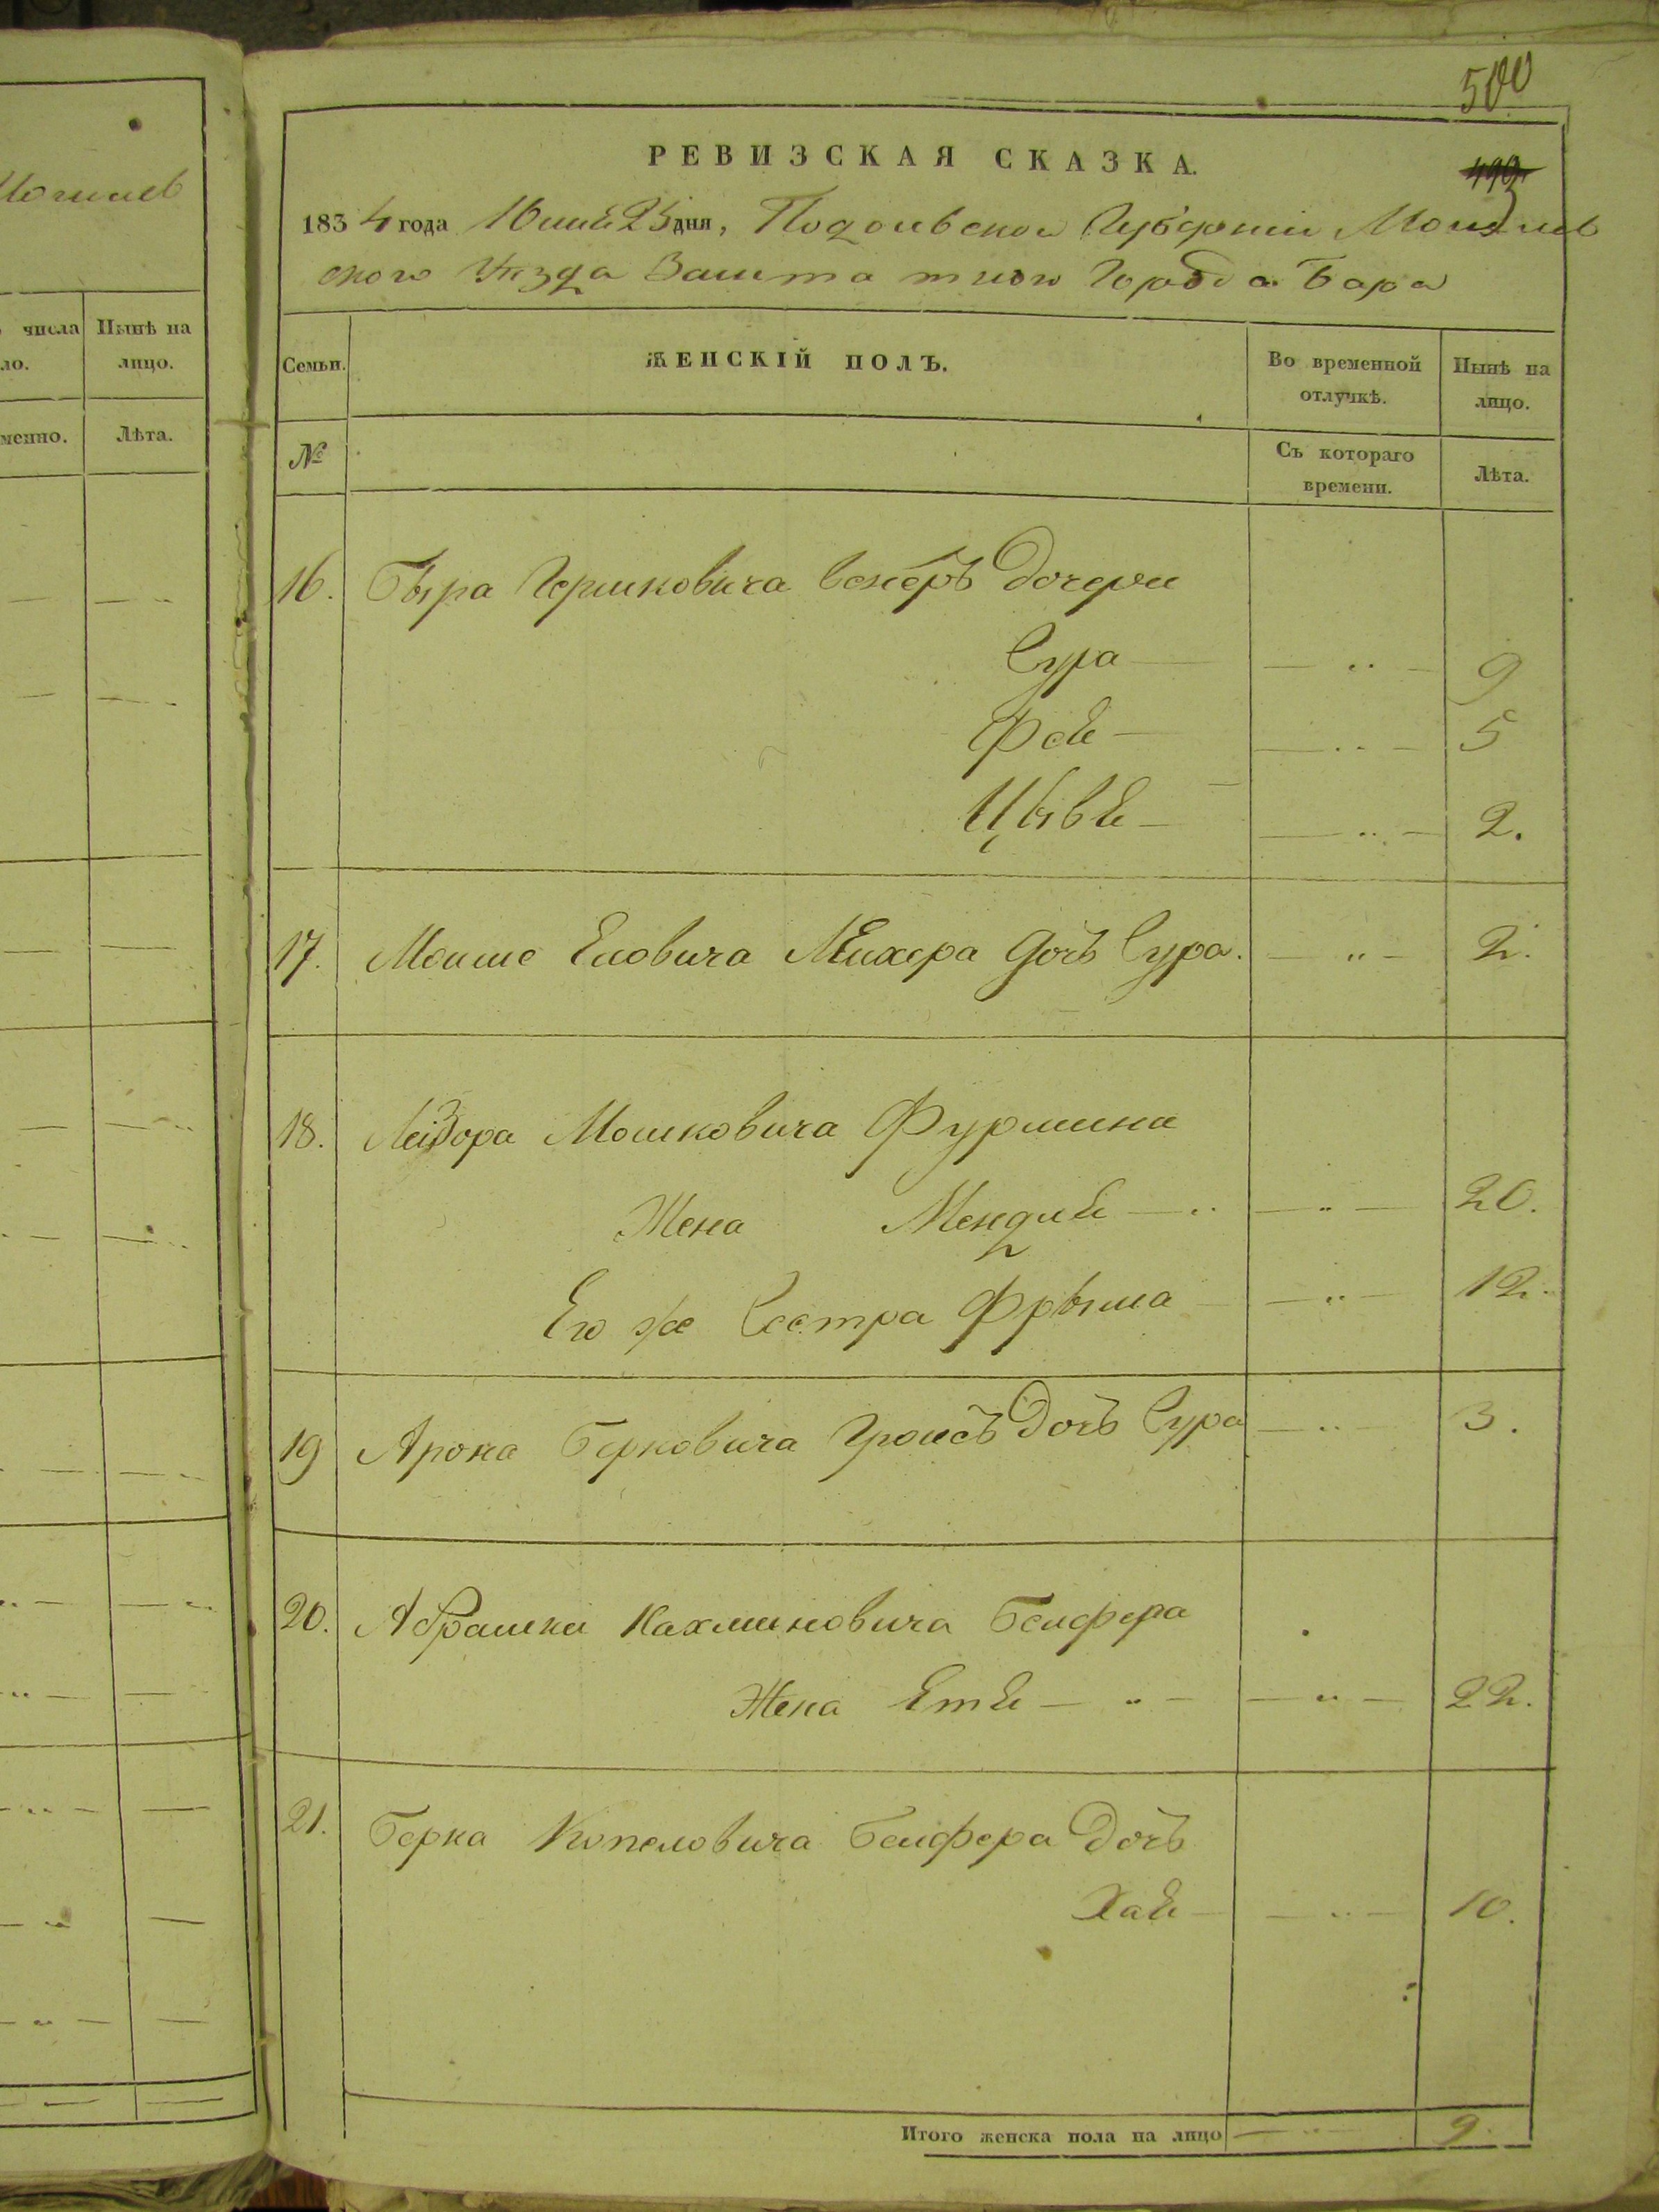 Могилев
числа Нынѣ на
ло. лицо.
менно. Лѣта.
500
РЕВИЗСКАЯ СКАЗКА.
1834 года Юния 25 дня, Подольской Губернии Могилев
ского Уезда Заштатного Города Бара
Семьи. ЖЕНСКІЙ ПОЛЪ. Во временной отлучкѣ. Нынѣ на лицо.
№ Съ котораго времени. Лѣта.
16. Гершковича дочери
Сура 9
Фейе 5
Цывье 2.
17. Моише Елевича Мейхера дочь Сура. 2.
18. Лейзора Мошковича Фурмана
Жена Мендле 20.
Его же Сестра Фрыма 12.
19 Арона Берковича Дочь Сура 3.
20. Абрашки Нахмановича Белфера
Жена Етье 22.
21. Берка Копеловича Белфера Дочь
Хае 10.
Итого женска пола на лицо 9.